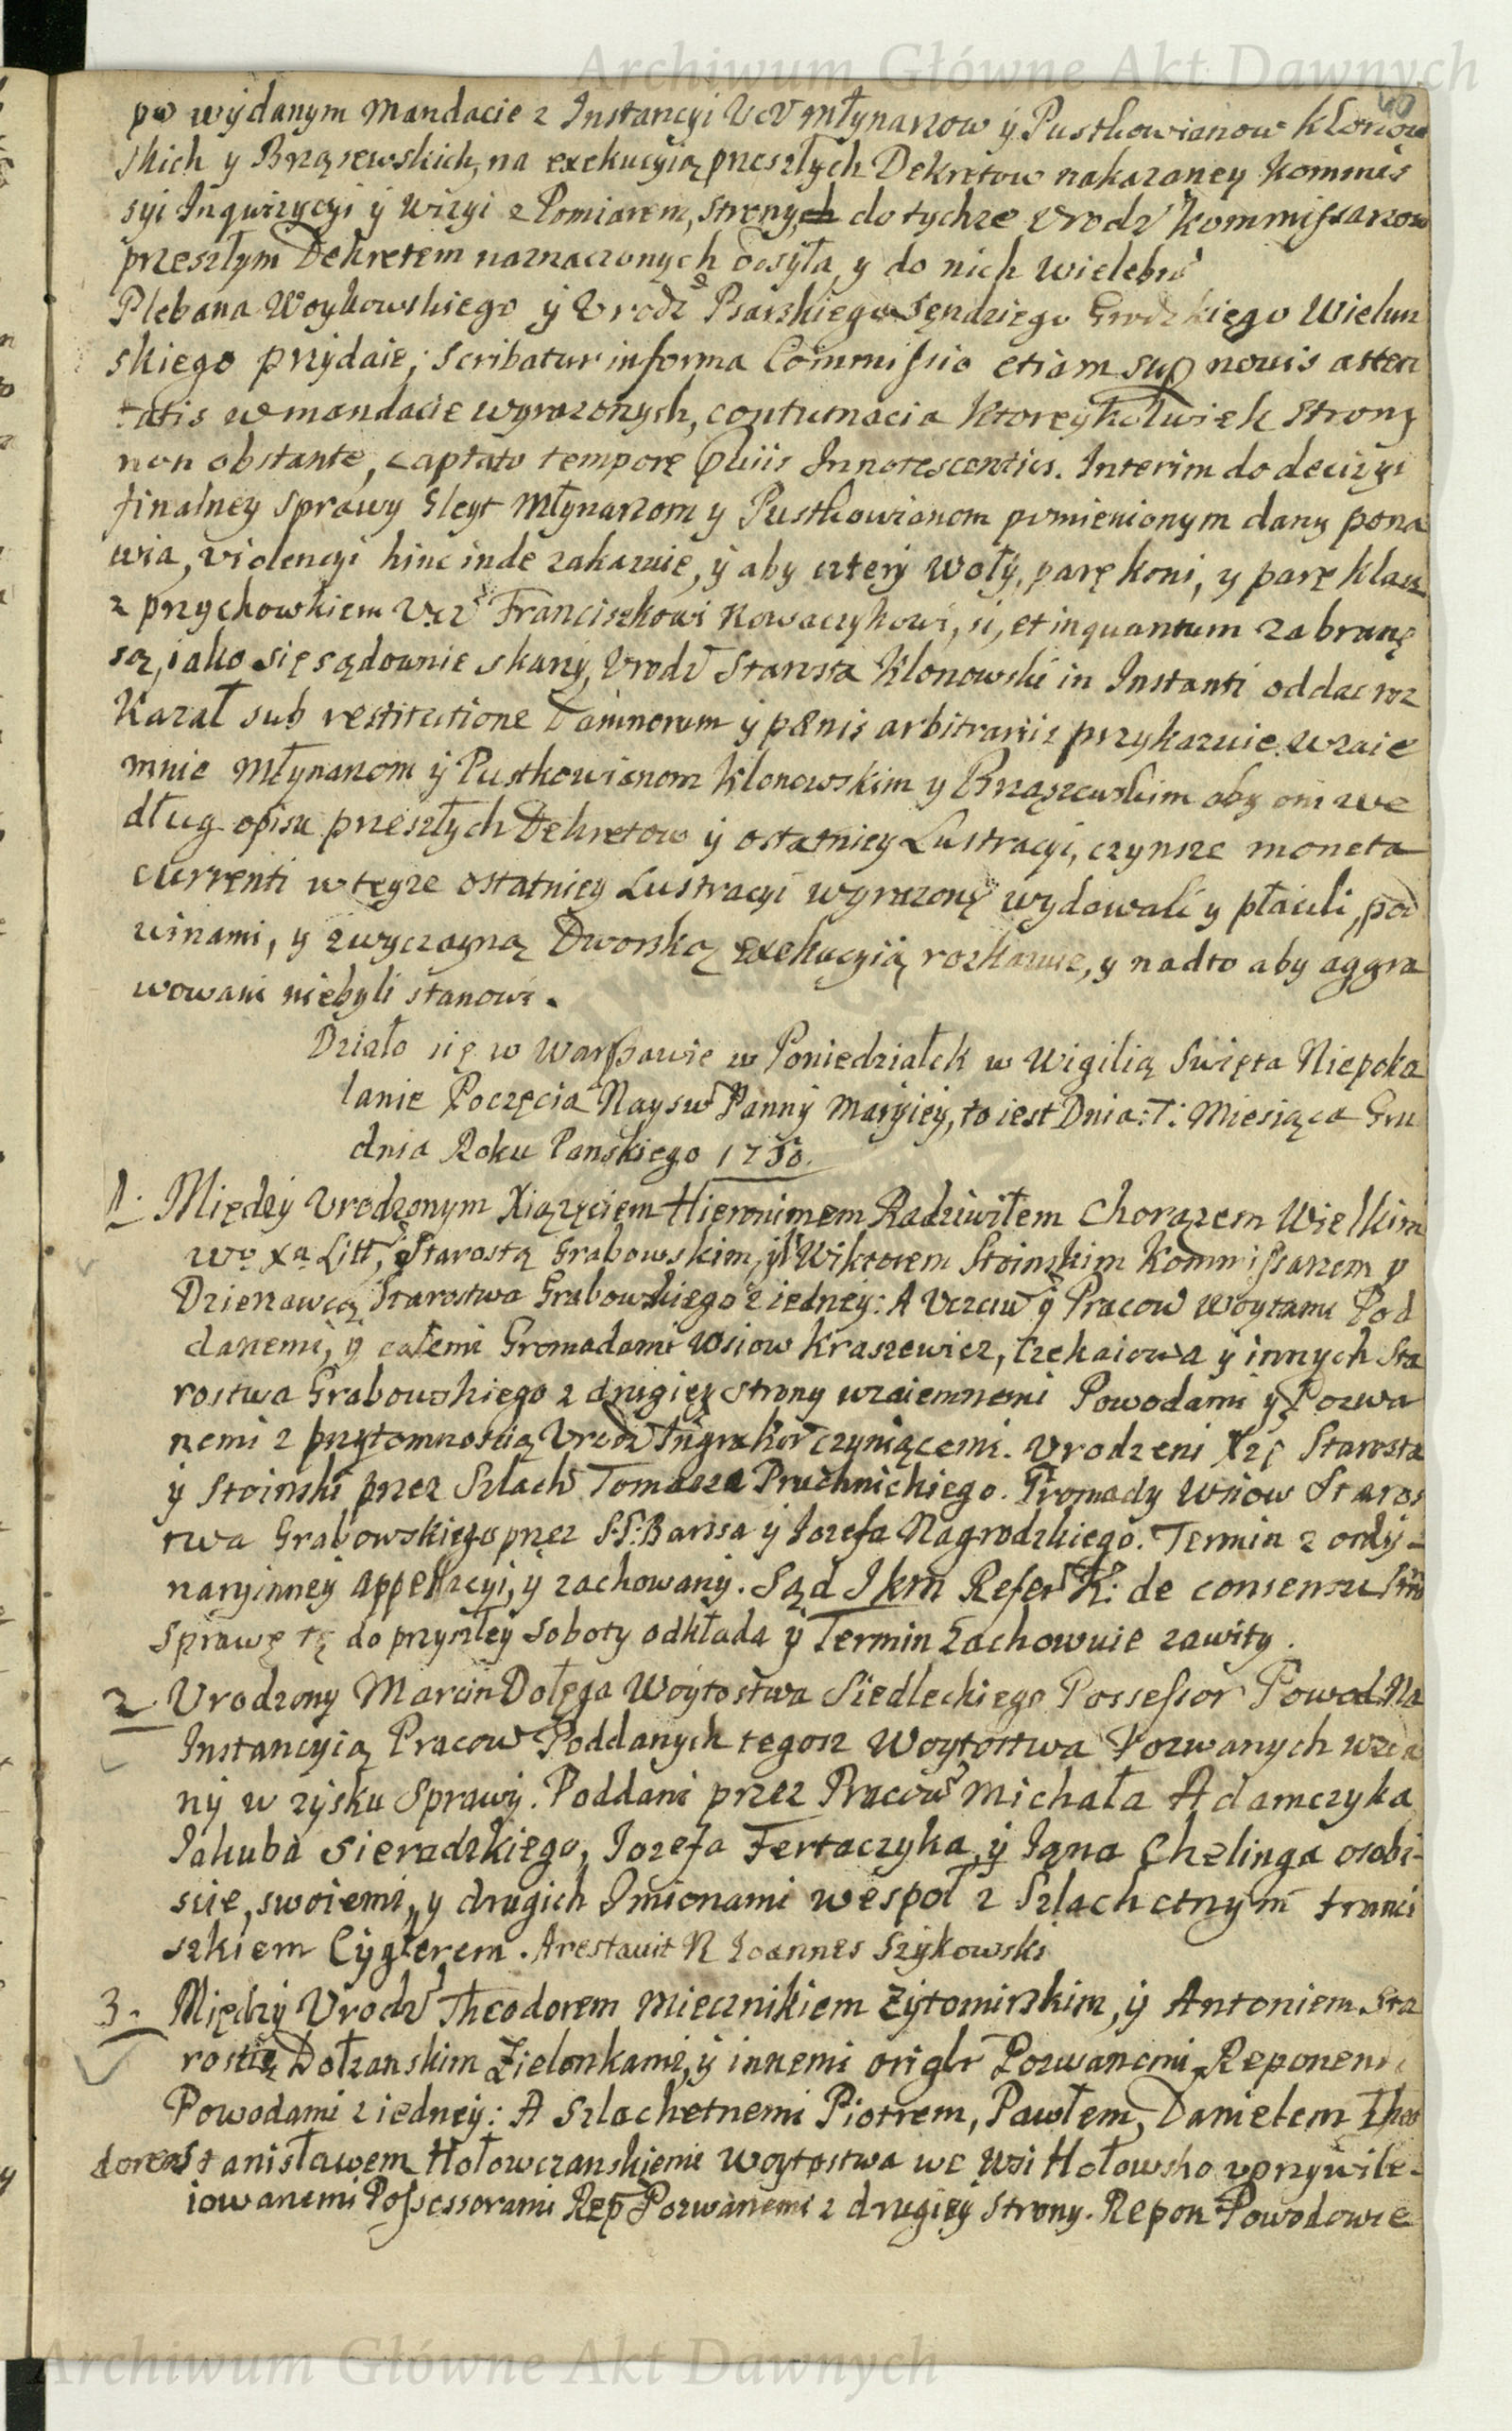 Archiwum Główne Akt Dawnych
po wydanym Mandacie z Instancyi UcV Młynarzow ÿ Pustkowianow Klonow
skich y Brąszewskich, na exekucyią przeszłych Dekretow nakazaney Kommis
syi Inqwizycyi ÿ Wizyi z Pomiarem, Strony do tychze Urodz Kommissarzow
przeszłym Dekretem naznaczonych odsyła, y do nich Wielebne
Plebana Woykowskiego ÿ Urodz Psarskiego Sęndziego Grodzkięgo Wielun
skiego przydaie; Scribatur in forma Commissio etiam sup novis atten
tatis w mandacie wyrazonych, contumacia ktoreykolwiek Strony
non obstante, captato tempore Innotescentiis. Interim do decizyi
finalney Sprawy Gleyt Młynarzom y Pustkowianom pomienionym dany pona
wia, violencyi hinc inde zakazuie, ÿ aby cztery Woły, parę koni, y parę klacz
z przychowkiem Ucz Franciszkowi Kowaczykowi, si, et inquantum zabranę
są, iako się sądownie skarzy, Urodz Starosta Klonowski in Instanti oddac roz
Kazał sub restitutione Damnorum ÿ pænis arbitrariis przykazuie. wzaie
mnie Młynarzom ÿ Pustkowianom Klonowskim y Brząszewskim aby oni we
dług opisu przeszłych Dekretow ÿ ostatniey Lustracyi, czynsze moneta
currenti w teyze ostatniey Lustracyi wyrazonę wydowali y płacili, pod
winami, y zwyczayną Dworską exekucyią rozkazuie, y nadto aby aggra
wowani niebyli stanowi.
Działo się w Warszawie w Poniedziałek w Wigilią Swięta Niepoka
lanie Poczęcia Naysw Panny Maryiey, to iest Dnia: 7: Miesiąca Gru
dnia Roku Panskiego 1750.
1. Między Urodzonym Xiązęciem Hieronimem Radziwiłem Chorązem Wielkim
Wo Xa Litt, Starostą Grabowskim, ÿ Wiktorem Stoinskim Kommissarzem y
Dzierzawcą Starostwa Grabowskiego z iedney: A Uczciw ÿ Pracow Woytami Pod
danemi, ÿ całemi Gromadami Wsiow Kraszewicz, Czekaiowa ÿ innych Sta
rostwa Grabowskiego z drugiey Strony wzaiemnemi Powodami ÿ Pozwa
nemi z przytomnoscią Urodz Instygatorow czyniącemi. Urodzeni Xze Starosta
ÿ Stoinski przez Szlach Tomasza Pruchnickiego. Gromady Wsiow Staros
twa Grabowskiego przez S.S. Barssa ÿ Jozefa Nagrodzkiego. Termin z ordy-
naryinney appellacyi, ÿ zachowany. Sąd J km Refer K: de consensu
Sprawę tę do przyszłey Soboty odkłada ÿ Termin Zachowuie zawity.
2. Urodzony Marcin Dołęga Woytostwa Siedleckiego Possessor Powod Na
Instancyią Pracow Poddanych tegosz Woytostwa Pozwanych wzda
ny w zysku Sprawy. Poddani przez Pracow Michała Adamczyka
Jakuba Sieradzkiego, Jozefa Fertaczyka, ÿ Jana Chelinga osobi-
scie, swoiemi, y drugich Imionami wespoł z Szlachetnym Franci
szkiem Cyglerem. Arestavit R Joannes Szykowski
3. Między Urodz Theodorem Miecznikiem Zytomirskim, ÿ Antoniem Sta
rostą Dołzanskim Zielonkami, ÿ innemi origlr Pozwanemi Reponen
Powodami z iedney: A Szlachetnemi Piotrem, Pawłem, Daniełem Theo
dorem Stanisławem Hołowczanskiemi Woytostwa we Wsi Hołowsko uprzywile-
iowanemi Possessorami Rep Pozwanemi z drugiey Strony. Repon Powodowie
Archiwum Główne Akt Dawnych